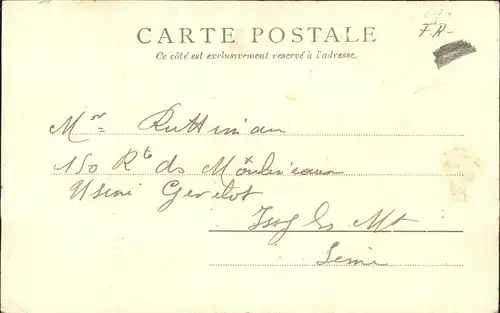 CARTE POSTALE
Ce côté est exclusivement reservé à l'adresse.
FR-
Mr
150 Rte des Moulineaux
Usine Gevelot
Issy les Mx
Seine